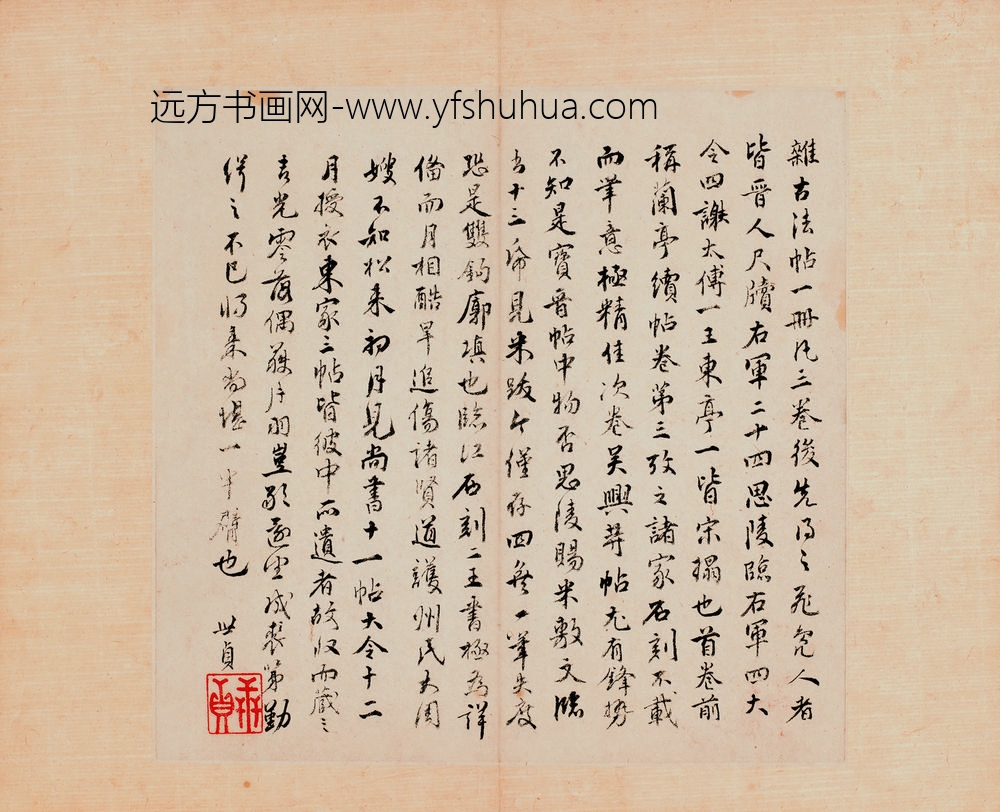 远方书画网-www.yfshuhua.com
雜古法帖一冊凡三卷後先得之飛凫人者
皆晉人尺牘右軍二十四思陵臨右軍四大
令四謝太傅一王東亭一皆宋搨也首卷前
稱蘭亭續帖卷第三攷之諸家石刻不載
而筆意極精佳次卷吳興等帖尤有鋒勢
不知是寶晉帖中物否思陵賜米敷文臨
右十三帋見米跋今僅存四無一筆失度
恐是雙鈎廓填也臨江石刻二王書極為詳
備而月相酷旱追傷諸賢道護州民太周
嫂不知松来初月見尚書十一帖大令十二
月授衣東家三帖皆彼中所遺者故收而藏之
吉光零落偶獲片羽豈敢遂望成裘第勤
得之不已將来當堪一半臂也
世貞